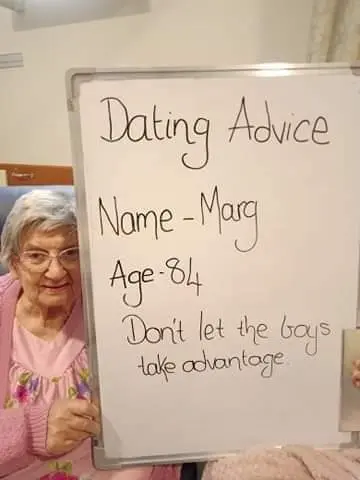 Dating Advice
Name - Marg
Age - 84
Don't let the boys
take advantage.